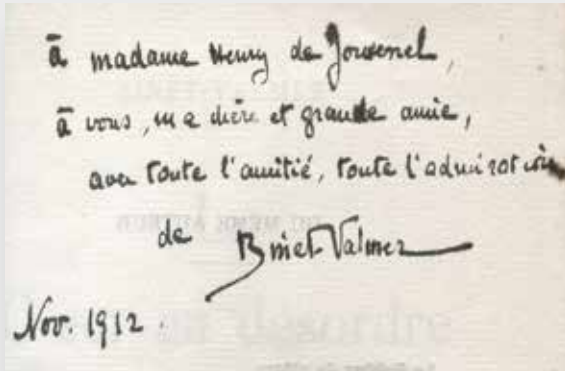 à madame Henry de Jouvenel,
à vous, ma chère et grande amie,
avec toute l'amitié, toute l'admiration
de Binet-Valmer
Nov. 1912.
en désordre